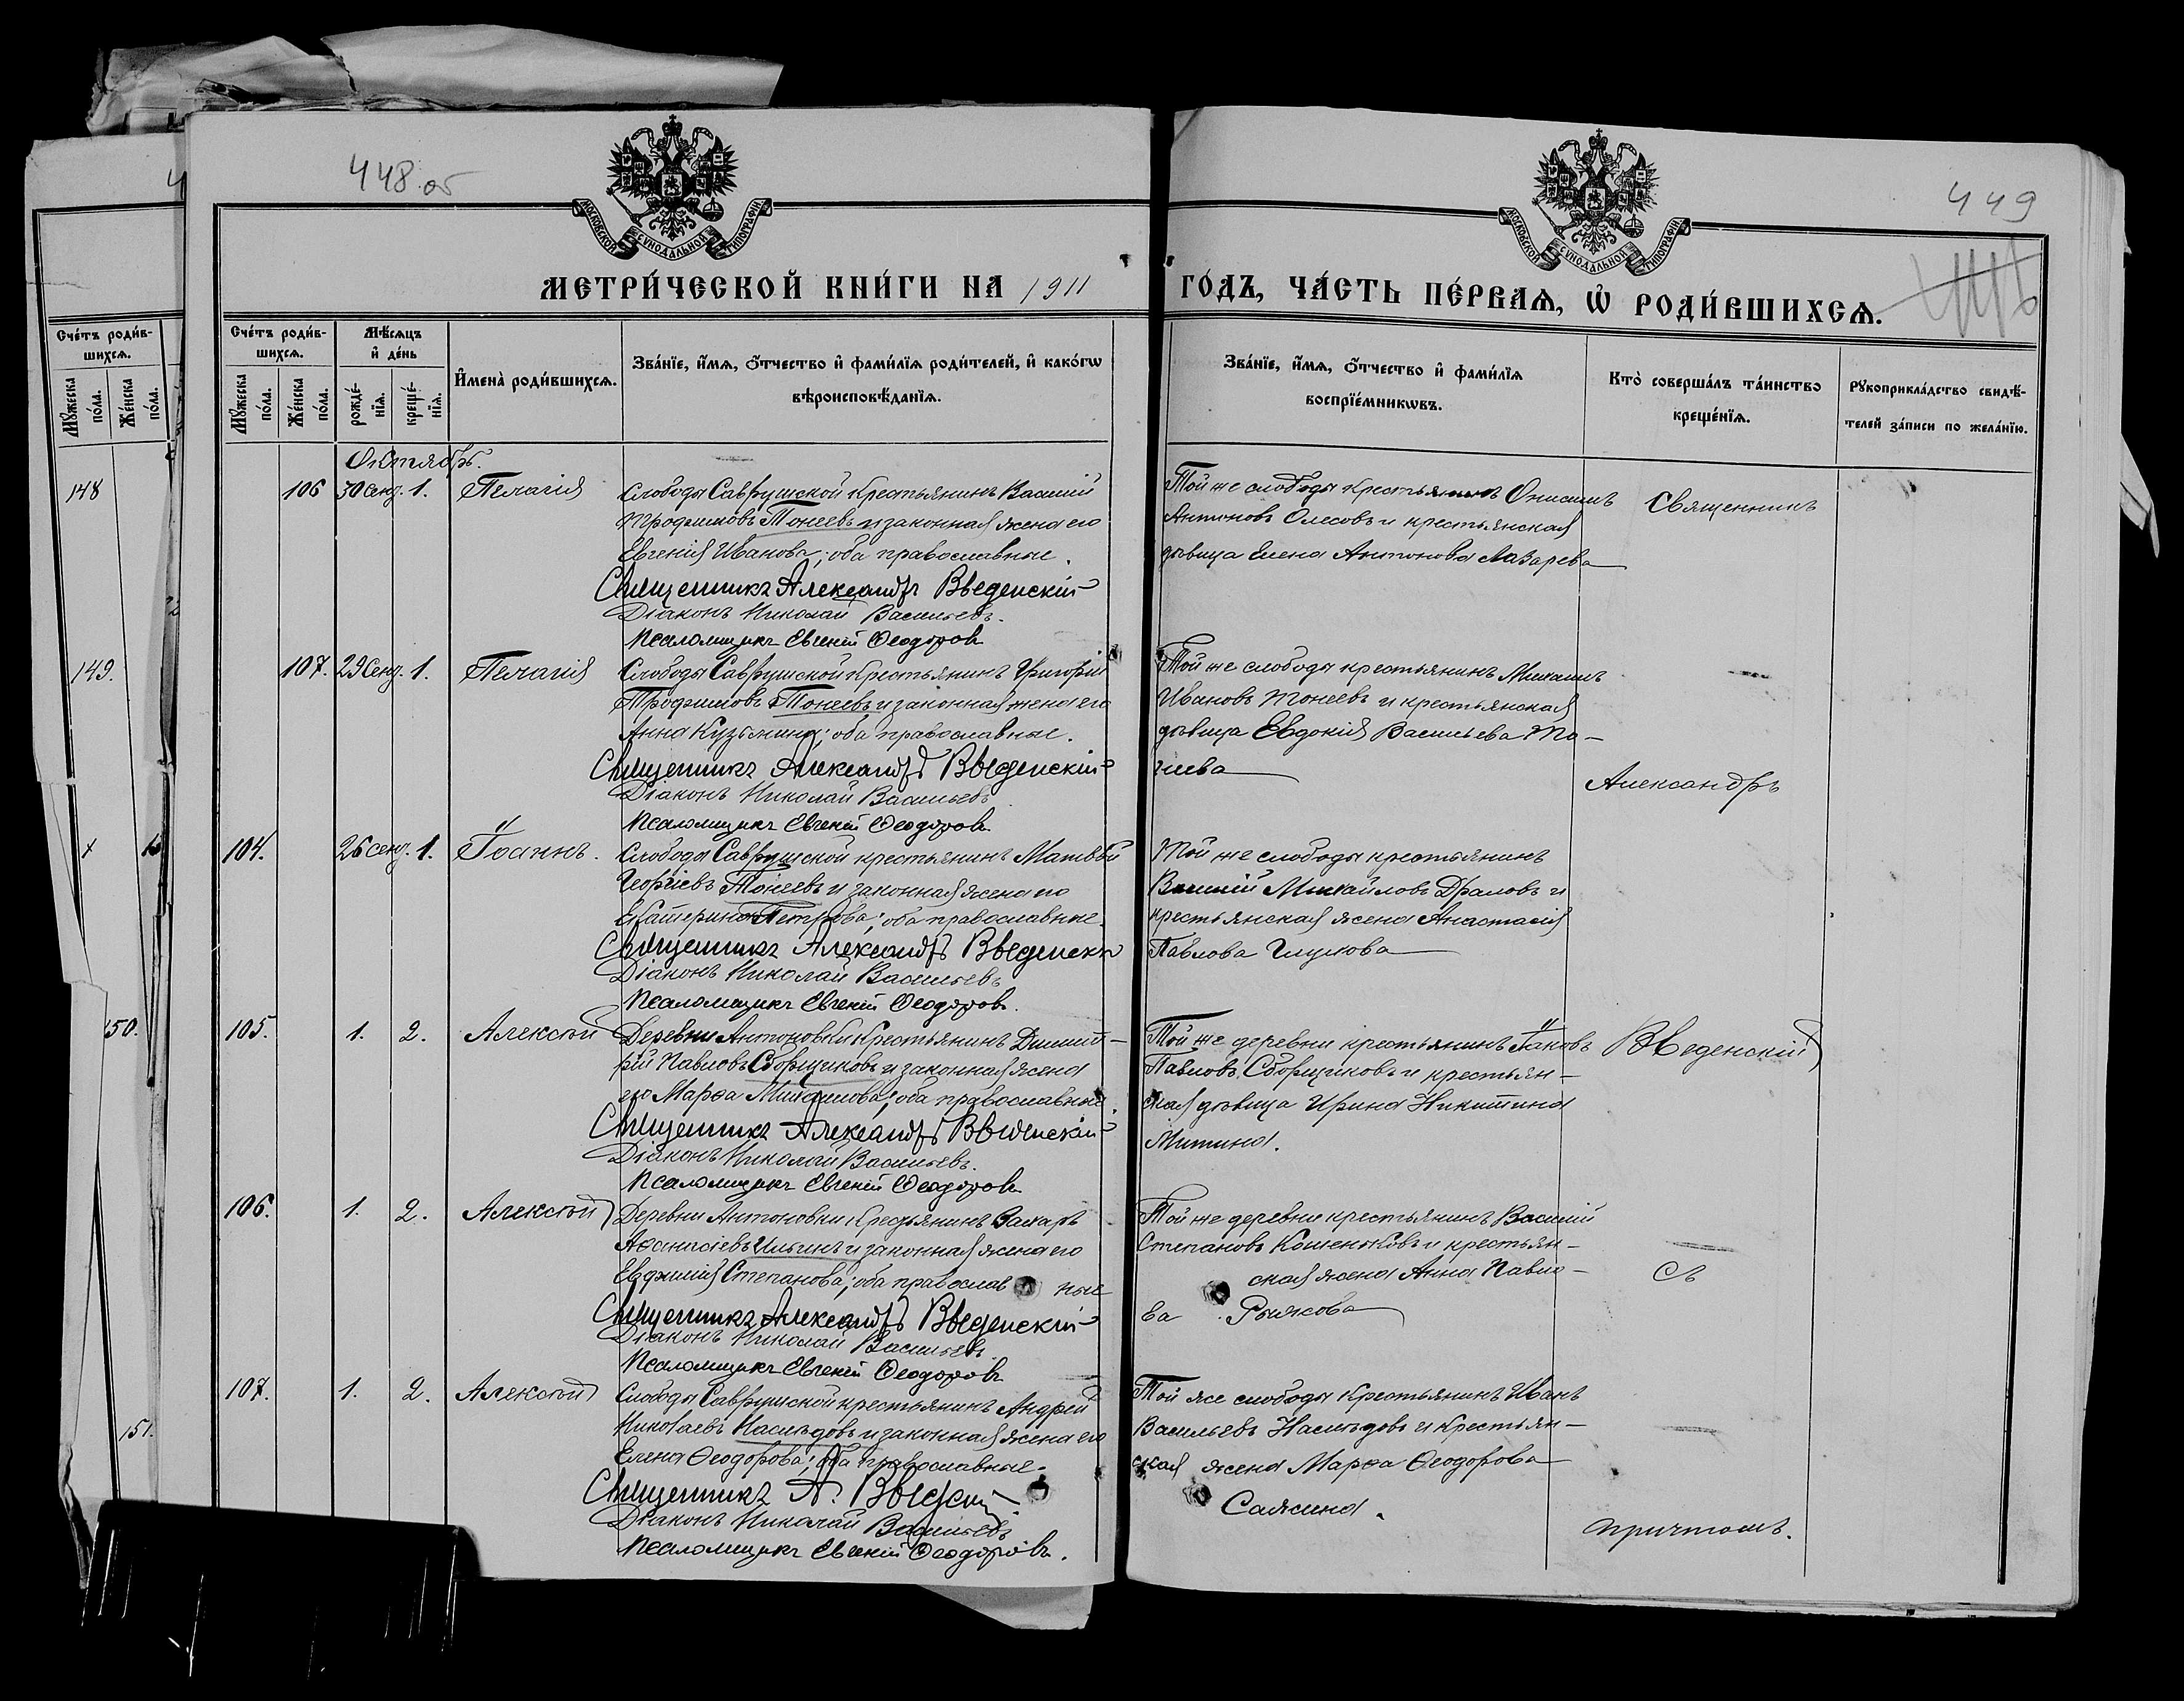 448 об
449
МОСКОВСКОЙ СѴНОДАЛЬНОЙ ТИПОГРАФІИ
МОСКОВСКОЙ СѴНОДАЛЬНОЙ ТИПОГРАФІИ
МЕТРИ́ЧЕСКОЙ КНИ́ГИ НА 1911
ГО́ДЪ, ЧА́СТЬ ПЕ́РВАѦ, Ѡ҆ РОДИ́ВШИХСѦ.
Сче́тъ роди́в-
шихсѧ.
Мꙋ́жеска
по́ла.
Же́нска
по́ла.
Сче́тъ роди́в-
шихсѧ.
Мꙋ́жеска
по́ла.
Же́нска
по́ла.
Мѣ́сѧцъ
и҆ де́нь
рожде́-
нїѧ.
креще́-
нїѧ.
И҆мена̀ роди́вшихсѧ.
Зва́нїе, и҆́мѧ, о҆́тчество и҆ фами́лїѧ роди́телей, и҆ како́гѡ
вѣроисповѣ́данїѧ.
Зва́нїе, и҆́мѧ, о҆́тчество и҆ фами́лїѧ
воспрїе́мникѡвъ.
Кто̀ соверша́лъ та́инство
креще́нїѧ.
Рꙋкоприкла́дство свидѣ́-
телей за́писи по жела́нїю.
148
149.
150.
151.
Октябрь.
106 30 Сент. 1. Пелагія
Слободы Саврушской крестьянинъ Василій
Трофимовъ Тонеевъ и законная жена его
Евгенія Иванова; оба православные.
Священникъ Александръ Введенскій
Діаконъ Николай Васильевъ.
Псаломщикъ Евгеній Ѳеодоровъ
Той же слободы крестьянинъ Онисимъ
Антоновъ Олесовъ и крестьянская
дѣвица Елена Антонова Лазарева
Священникъ
107. 29 Сент. 1. Пелагія
Слободы Саврушской крестьянинъ Григорій
Трофимовъ Тонеевъ и законная жена его
Анна Кузьмина; оба православные.
Священникъ Александръ Введенскій
Діаконъ Николай Васильевъ
Псаломщикъ Евгеній Ѳеодоровъ
Той же слободы крестьянинъ Михаилъ
Ивановъ Тонеевъ и крестьянская
дѣвица Евдокія Васильева То-
неева
Александръ
104. 26 сент. 1. Іоаннъ.
Слободы Саврушской крестьянинъ Матвѣй
Георгіевъ Тонеевъ и законная жена его
Екатерина Петрова; оба православные.
Священникъ Александръ Введенскій
Діаконъ Николай Васильевъ
Псаломщикъ Евгеній Ѳеодоровъ.
Той же слободы крестьянинъ
Василій Михайловъ Драловъ и
крестьянская жена Анастасія
Павлова Глухова
105. 1. 2. Алексѣй
Деревни Антоновки крестьянинъ Димит-
рій Павловъ Сборщиковъ и законная жена
его Марѳа Михайлова; оба православные.
Священникъ Александръ Введенскій
Діаконъ Николай Васильевъ.
Псаломщикъ Евгеній Ѳеодоровъ
Той же деревни крестьянинъ Іаковъ
Павловъ Сборщиковъ и крестьян-
ская дѣвица Ирина Никитина
Митина.
Введенскій
106. 1. 2. Алексѣй
Деревни Антоновки крестьянинъ Захаръ
Аѳанасіевъ Ильинъ и законная жена его
Евдокія Степанова; оба православ ные
Священникъ Александръ Введенскій
Діаконъ Николай Васильевъ
Псаломщикъ Евгеній Ѳеодоровъ
Той же деревни крестьянинъ Василій
Степановъ Кошенковъ и крестьян-
ская жена Анна Павло-
ва Рыжкова
съ
107. 1. 2. Алексѣй
Слободы Саврушской крестьянинъ Андрей
Николаевъ Наслѣдовъ и законная жена его
Елена Ѳеодорова; оба православные.
Священникъ А. Введенскій
Діаконъ Николай Васильевъ
Псаломщикъ Евгеній Ѳеодоровъ.
Той же слободы крестьянинъ Иванъ
Васильевъ Наслѣдовъ и крестьян-
ская жена Марѳа Ѳеодорова
Сажина.
причтомъ.